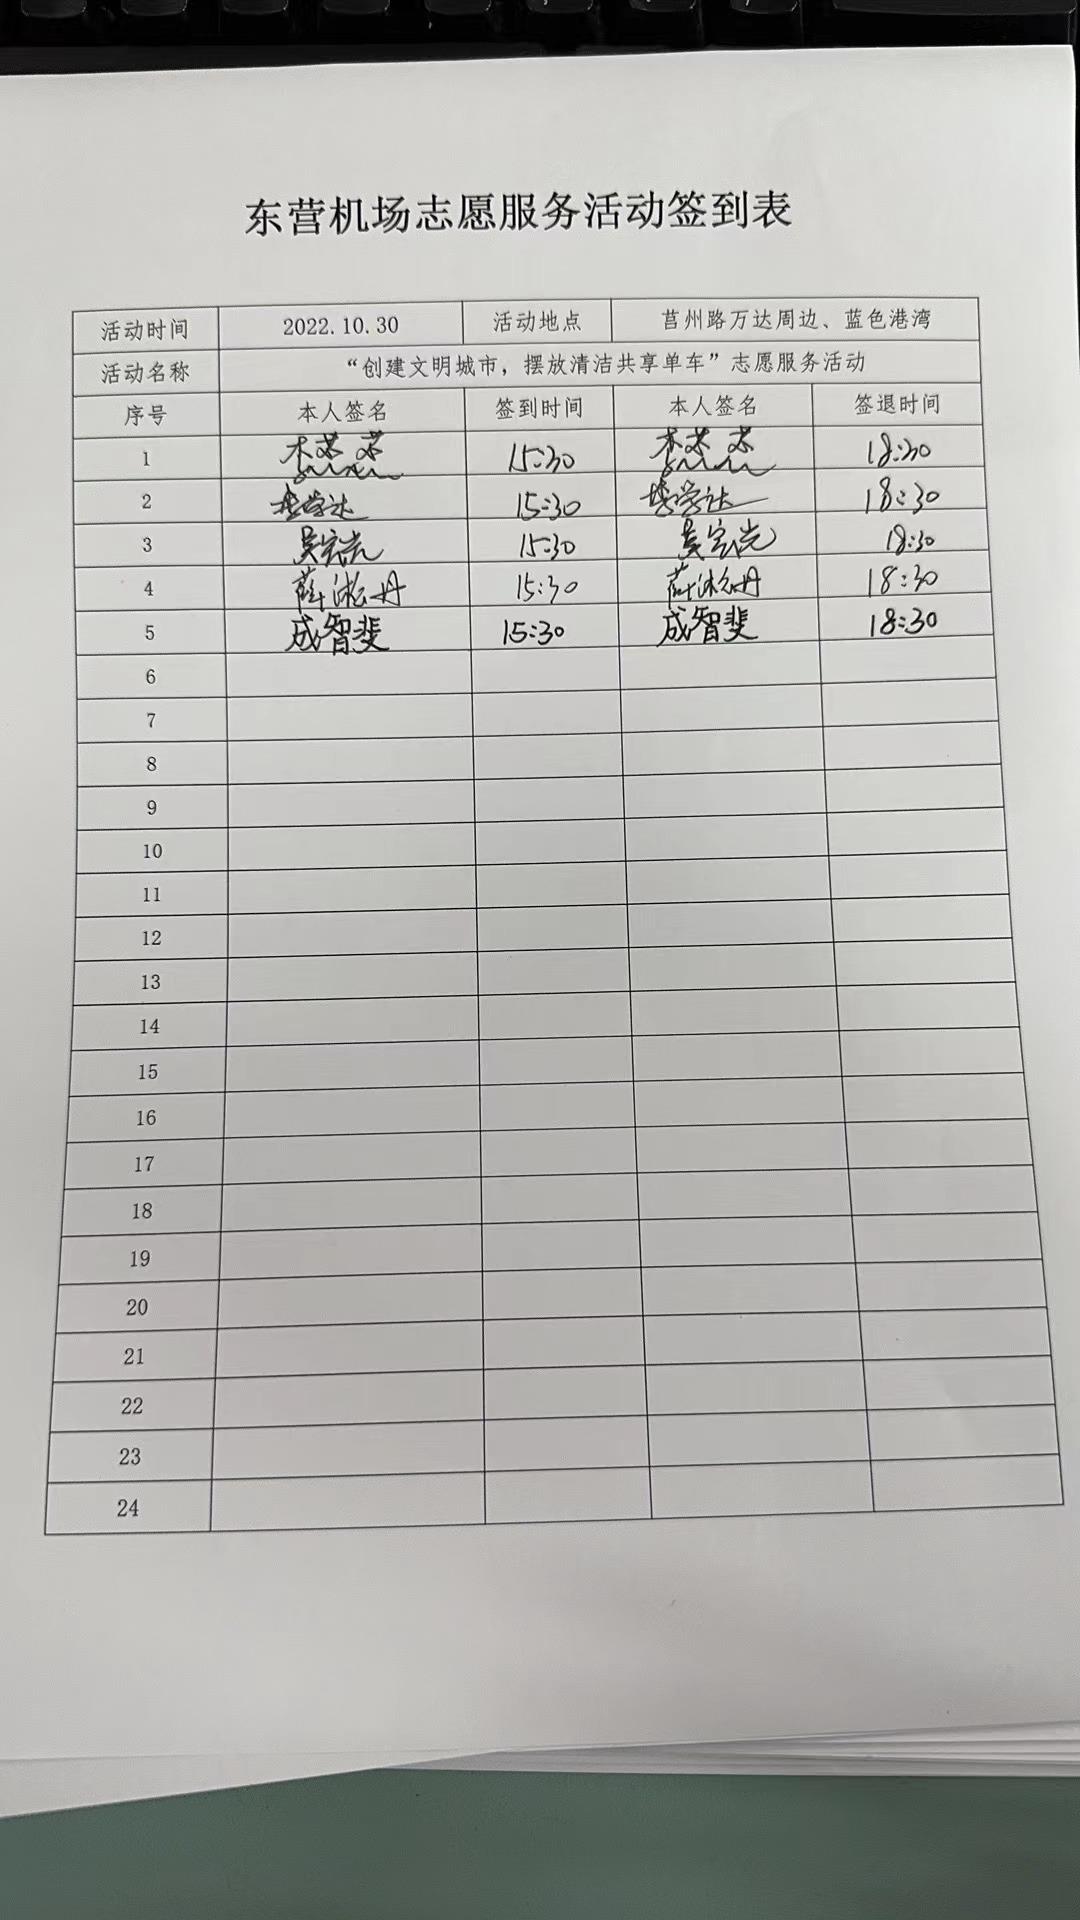 东营机场志愿服务活动签到表
活动时间 2022.10.30 活动地点 莒州路万达周边、蓝色港湾
活动名称 “创建文明城市，摆放清洁共享单车”志愿服务活动
序号 本人签名 签到时间 本人签名 签退时间
1 15:30 18:30
2 15:30 18:30
3 吴宏光 15:30 吴宏光 18:30
4 薛淞丹 15:30 薛淞丹 18:30
5 成智斐 15:30 成智斐 18:30
6
7
8
9
10
11
12
13
14
15
16
17
18
19
20
21
22
23
24